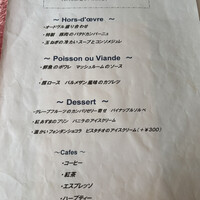 ～ Hors-d'œvre ～
・オードヴル盛り合わせ
・特製 豚肉のパテドカンパーニュ
・玉ねぎの冷たいスープとコンソメジュレ
～ Poisson ou Viande ～
・鮮魚のポワレ マッシュルームのソース
・豚ロース パルメザン風味のカツレツ
～ Dessert ～
・グレープフルーツのコンパリゼリー寄せ パイナップルソルベ
・紅あずまのプリン バニラのアイスクリーム
・温かいフォンダンショコラ ピスタチオのアイスクリーム (+¥300)
～Cafes ～
・コーヒー
・紅茶
・エスプレッソ
・ハーブティー